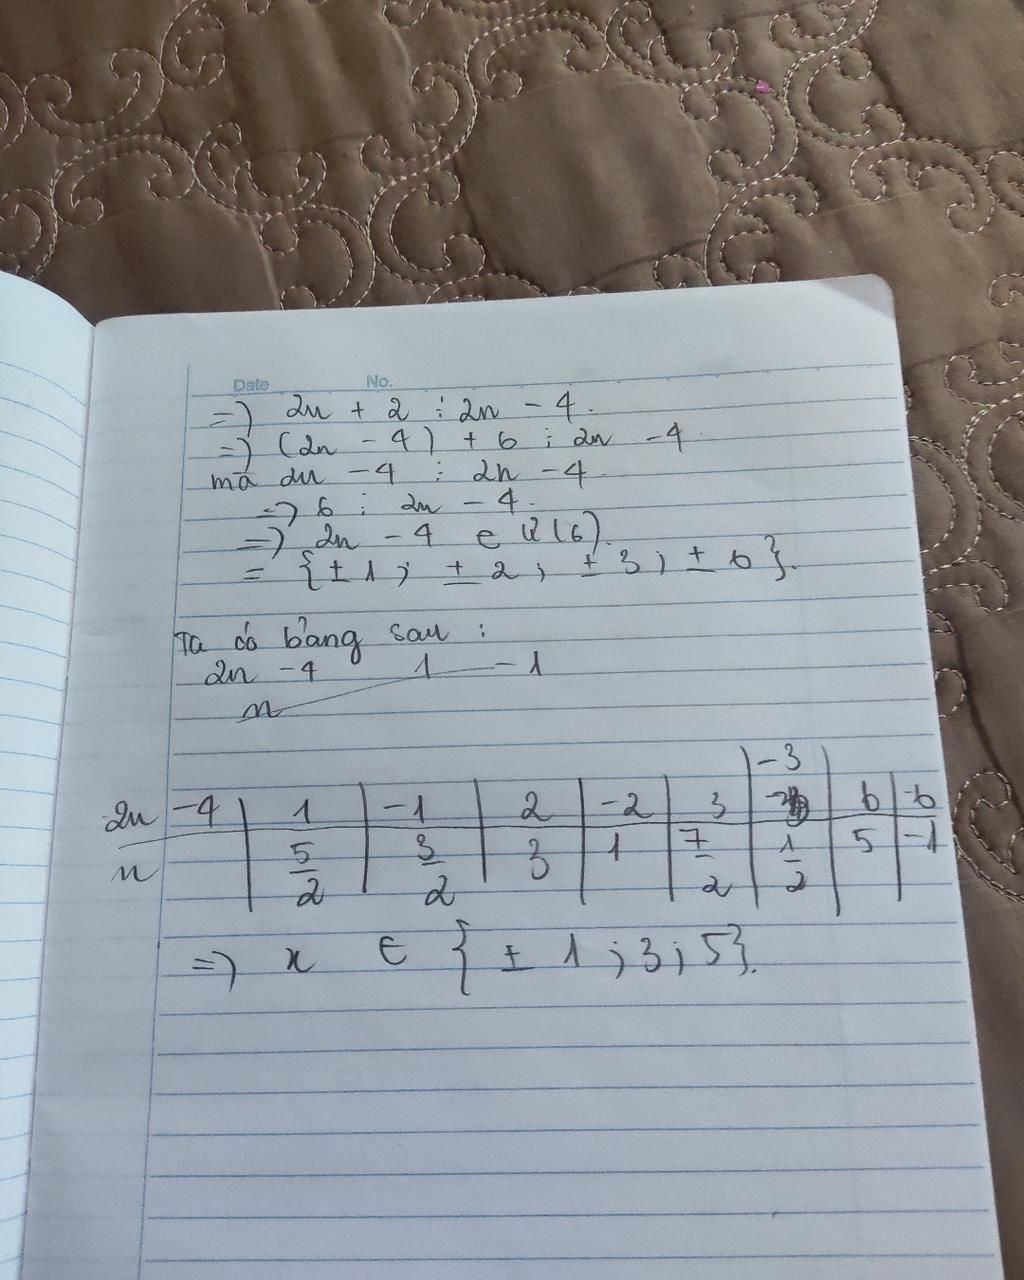 Date No.
=> 2n + 2 ⋮ 2n - 4.
=> (2n - 4) + 6 ⋮ 2n - 4
mà 2n - 4 ⋮ 2n - 4
=> 6 ⋮ 2n - 4.
=> 2n - 4 e Ư(6).
= {±1; ±2; ±3; ±6}.
Ta có bảng sau :
2n - 4 1 -1
n
-3
2n -4 1 -1 2 -2 3 6 -6
n 5/2 3/2 3 1 7/2 1/2 5 -1
=> x ∈ {±1; 3; 5}.